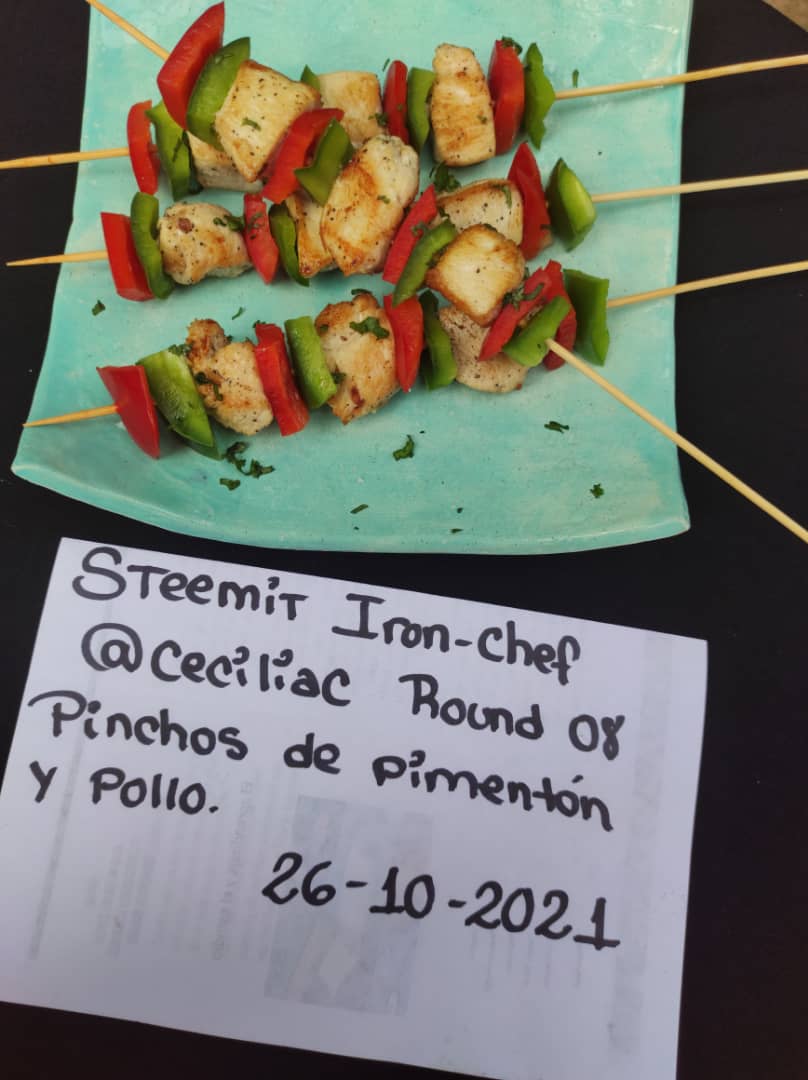 Steemit Iron-Chef
@ceciliac Round 08
Pinchos de pimentón
y Pollo.
26-10-2021